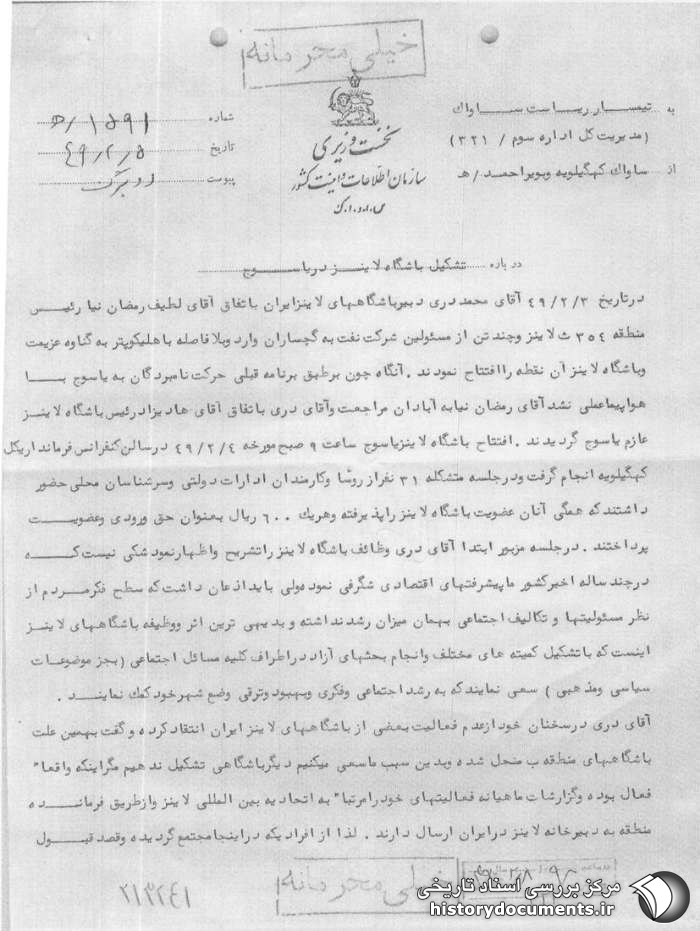 خیلی محرمانه
به تیمسار ریاست ساواك
(مدیریت کل اداره سوم / ۳۲۱)
از ساواك کهگیلویه وبویراحمد /ﻫ
نخست وزیری
سازمان اطلاعات و امنیت کشور
س.ا.و.ا.ک
شماره ۱۵۹۱/ﻫ
تاریخ ۴۹/۲/۵
پیوست دو برگ
درباره تشکیل باشگاه لاینز دریاسوج
درتاریخ ۴۹/۲/۳ آقای محمددری دبیرباشگاههای لاینزایران باتفاق آقای لطیف رمضان نیا رئیس
منطقه ۳۵٤ ث لاینز وچندتن از مسئولین شرکت نفت به گچساران وارد وبلافاصله باهلیکوپتر به گناوه عزیمت
وباشگاه لاینز آن نقطه راافتتاح نمودند . آنگاه چون برطبق برنامه قبلی حرکت نامبردگان به یاسوج بـــا
هواپیماعملی نشد آقای رمضان نیابه آبادان مراجعت وآقای دری باتفاق آقای هادیزاد رئیس باشگاه لاینـز
عازم یاسوج گردیدند . افتتاح باشگاه لاینزیاسوج ساعت ۹ صبح مورخه ۴۹/۲/٤ درسالن کنفرانس فرمانداریکل
کهگیلویه انجام گرفت ودرجلسه متشکله ۳۱ نفراز روسًا وکارمندان ادارات دولتی وسرشناسان محلی حضور
داشتند که همگی آنان عضویت باشگاه لاینز راپذیرفته وهریك ۶۰۰ ریال بعنوان حق ورودی وعضویـــت
پرداختند . درجلسه مزبور ابتدا آقای دری وظائف باشگاه لاینز راتشریح واظهارنمود شکی نیست کـــه
درچند ساله اخیرکشور ماپیشرفتهای اقتصادی شگرفی نموده ولی بایداذعان داشت که سطح فکرمــردم از
نظر مسئولیتها و تکالیف اجتماعی بهمان میزان رشد نداشته و بدیهی ترین اثر ووظیفه باشگاههای لاینـز
اینست که باتشکیل کمیته های مختلف وانجام بحثهای آزاد دراطراف کلیه مسائل اجتماعی (بجز موضوعـات
سیاسی ومذهبی ) سعی نمایند که به رشد اجتماعی وفکری وبهبود وترقی وضع شهرخود کمك نماینـــد .
آقای دری درسخنان خودازعدم فعالیت بعضی از باشگاههای لاینز ایران انتقاد کرده و گفت بهمین علت
باشگاههای منطقه ب منحل شده وبدین سبب ماسعی میکنیم دیگر باشگاهی تشکیل ندهیم مگراینکه واقعاً
فعال بوده وگزارشات ماهیانه فعالیتهای خودرا مرتباً به اتحادیه بین المللی لاینز وازطریق فرمانــده
منطقه به دبیرخانه لاینز درایران ارسال دارند . لذا از افرادیکه دراینجا مجتمع گردیده وقصد قبــول
خیلی محرمانه
۲۱۳۲۴۱
مرکز بررسی اسناد تاریخی
historydocuments.ir